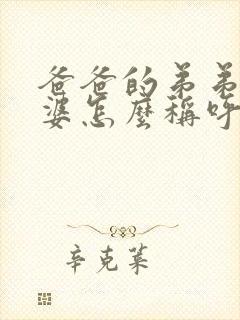 爸爸的弟弟
婆怎麼稱呼
辛克萊